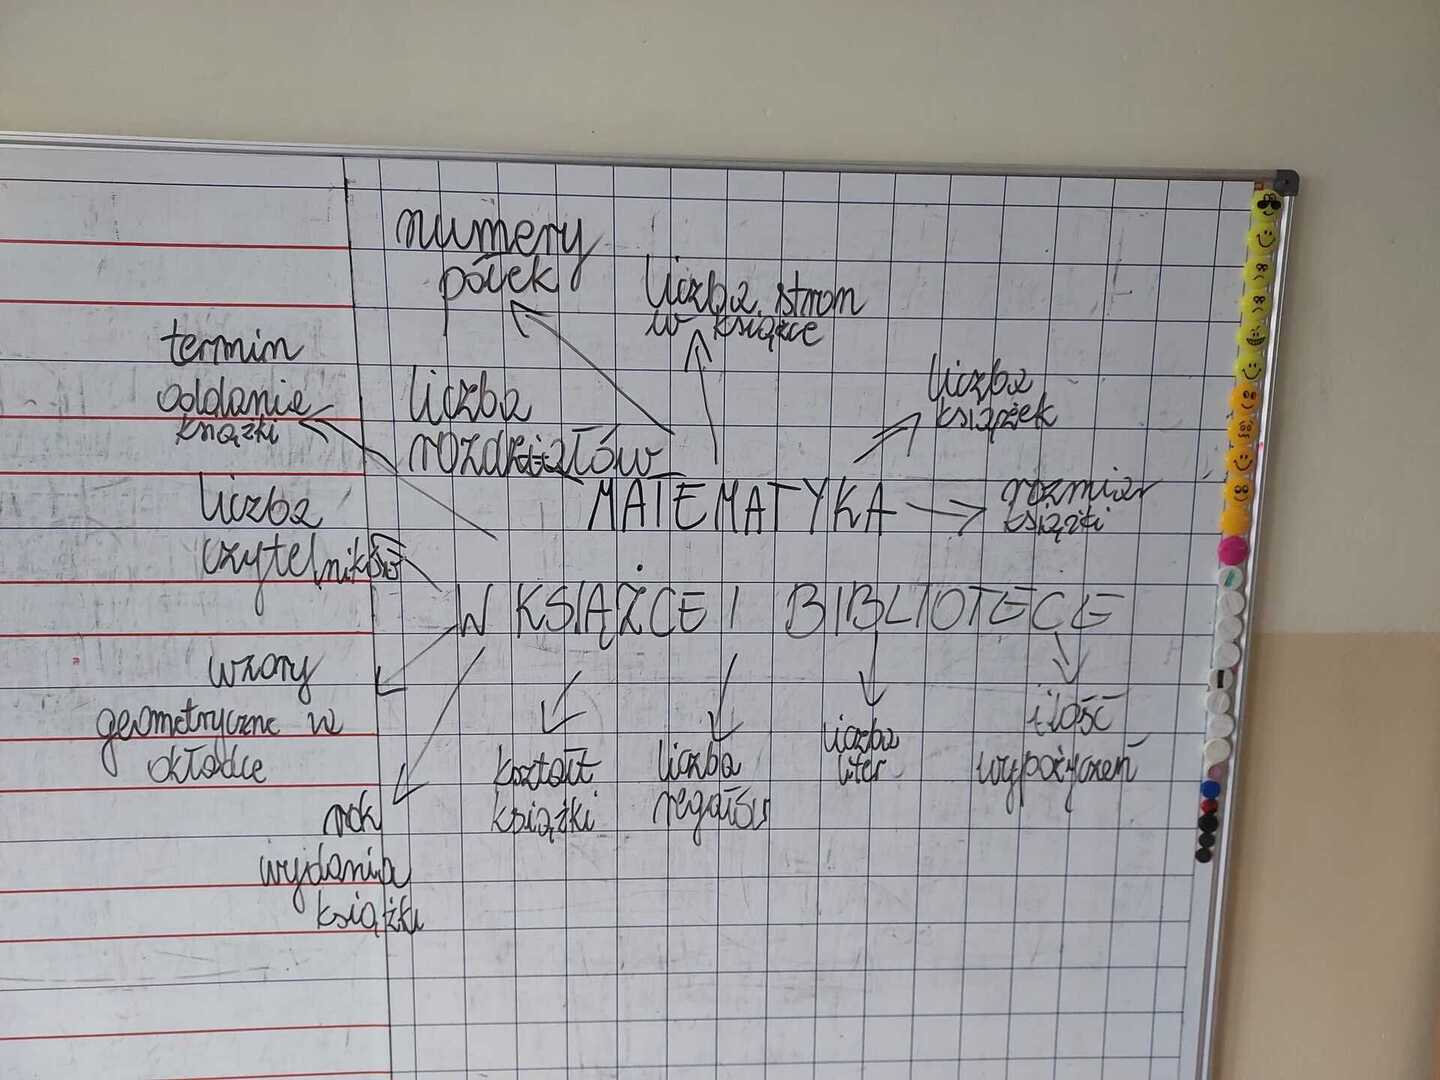 numery
półek
liczba stron
w książce
termin
oddania
książki
liczba
rozdziałów
liczba
książek
MATEMATYKA
rozmiar
książki
liczba
czytelników
W KSIĄŻCE I BIBLIOTECE
wzory
geometryczne w
okładce
kształt
książki
liczba
regałów
liczba
liter
ilość
wypożyczeń
rok
wydania
książki